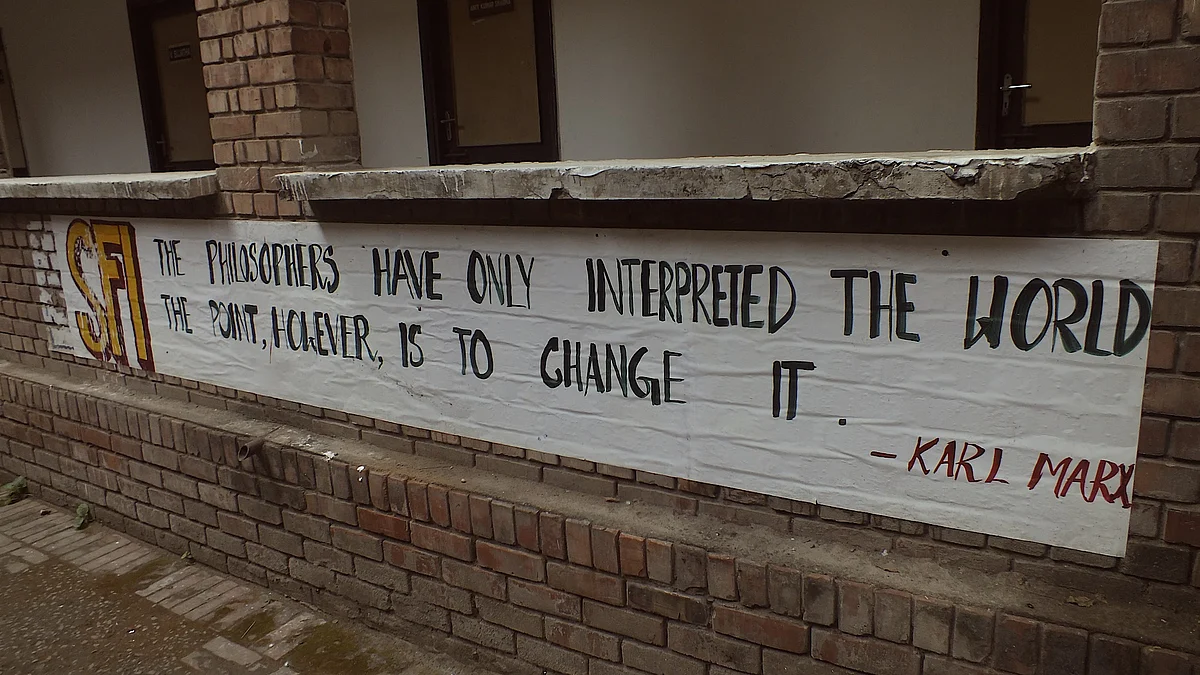 SFI
THE PHILOSOPHERS HAVE ONLY INTERPRETED THE WORLD
THE POINT, HOWEVER, IS TO CHANGE IT.
- KARL MARX